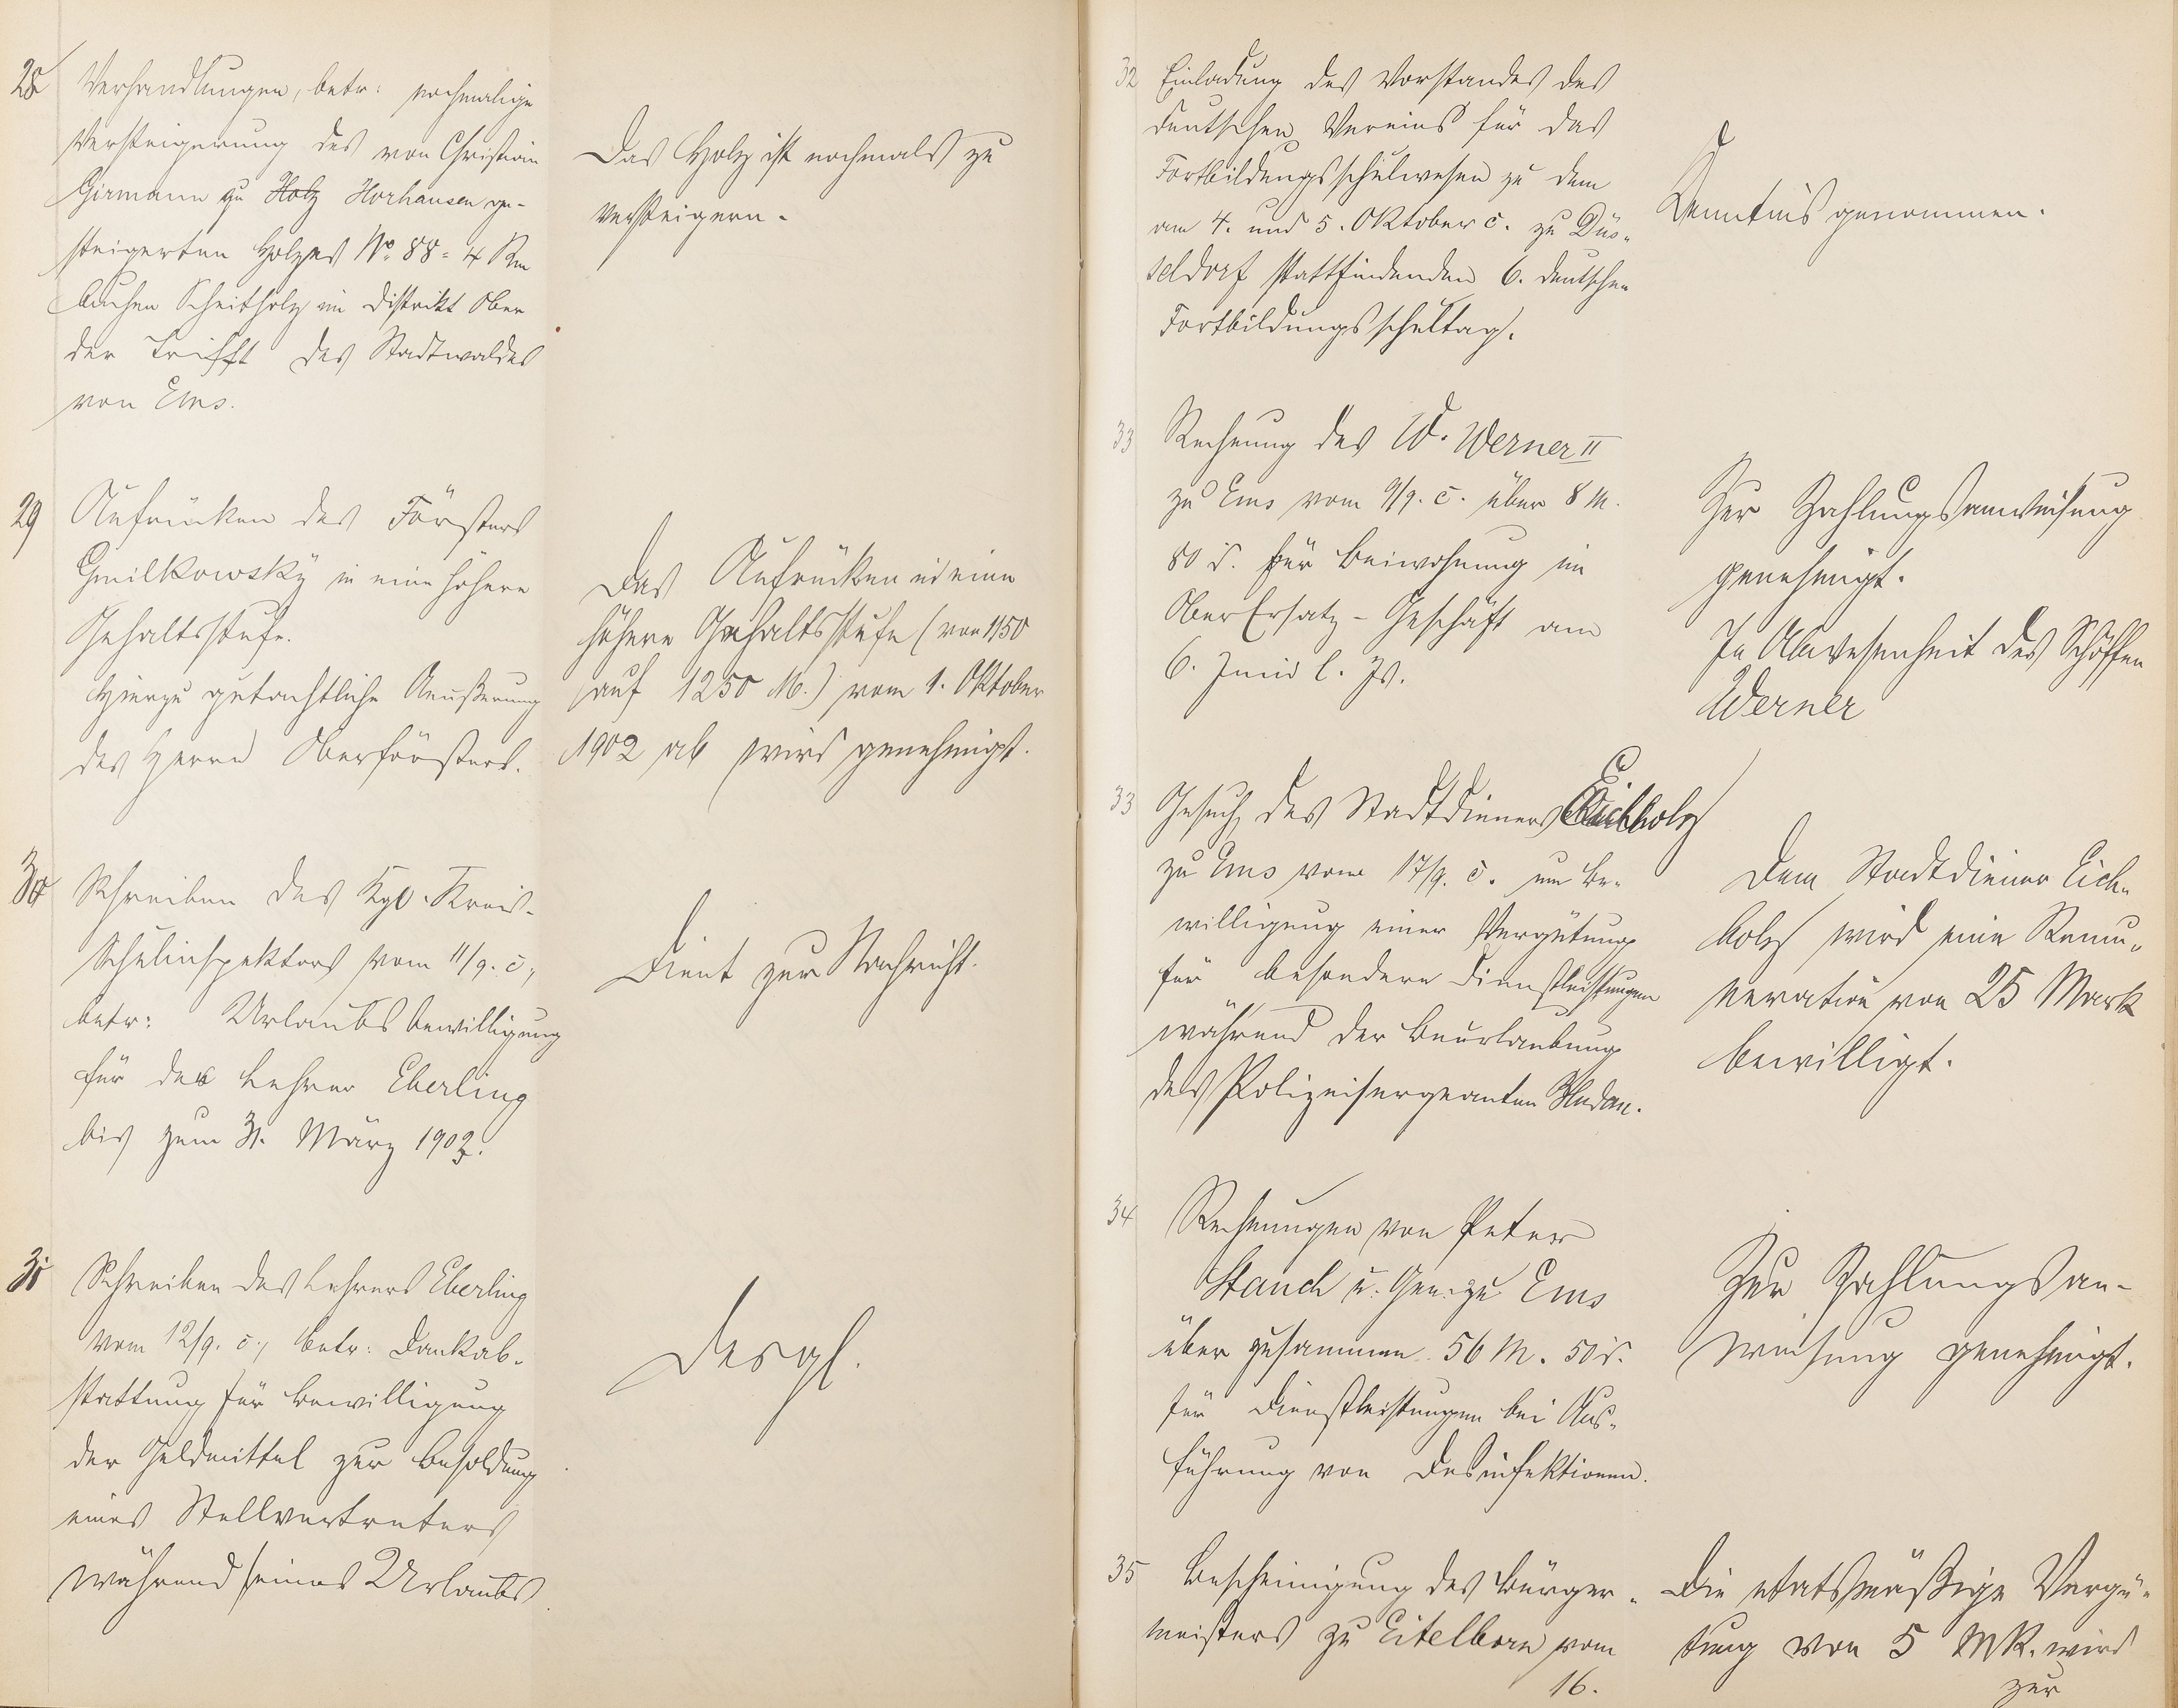 28
Verhandlungen, betr: nochmalige
Versteigerung des von Christian
Girmann zu Holz Horhausen ge-
steigerten Holzes No. 88 = 4 Rm
buchen Scheitholz im Distrikt Ober
der Trifft des Stadtwaldes
von Ems.
Das Holz ist nochmals zu
versteigern.
29
Aufrücken des Försters
Gmilkowsky in eine höhere
Gehaltsstufe.
Hierzu gutachtliche Aeußerung
des Herrn Oberförsters.
Das Aufrücken in eine
höhere Gehaltsstufe (von 1150
auf 1250 M.) vom 1. Oktober
1902 ab wird genehmigt.
30
Schreiben des Kgl. Kreis-
Schulinspektors vom 11/9. c.,
betr: Urlaubsbewilligung
für den Lehrer Eberling
bis zum 31. März 1903.
Dient zur Nachricht.
31
Schreiben des Lehrers Eberling
vom 12/9. c., betr: Dankab-
stattung für Bewilligung
der Geldmittel zur Besoldung
eines Stellvertreters
während seines Urlaubs.
Desgl.
32
Einladung des Vorstandes des
Deutschen Vereins für das
Fortbildungsschulwesen zu dem
am 4. und 5. Oktober c. zu Düs-
seldorf stattfindenden 6. deutschen
Fortbildungsschultag.
Kenntnis genommen.
33
Rechnung des W. Werner II
zu Ems vom 9/9. c. über 8 M.
80 d. für Beiwohnung im
Ober Ersatz-Geschäft am
6. Juni l. Js.
Zur Zahlungsanweisung
genehmigt.
In Abwesenheit des Schöffen
Werner
33
Gesuch des Stadtdieners Eichholz
zu Ems vom 17/9. c. um Be-
willigung einer Vergütung
für besondere Dienstleistungen
während der Beurlaubung
des Polizeisergeanten
Dem Stadtdiener Eich-
holz wird eine Remu-
neration von 25 Mark
bewilligt.
34
Rechnungen von Peter
Stauch u. Gen. zu Ems
über zusammen 56 M. 50 d.
für Dienstleistungen bei Aus-
führung von Desinfektionen.
Zur Zahlungsan-
weisung genehmigt.
35
Bescheinigung des Bürger-
meisters zu Eitelborn vom
16.
Die etatsmäßige Vergü-
tung von 5 Mk. wird
zur